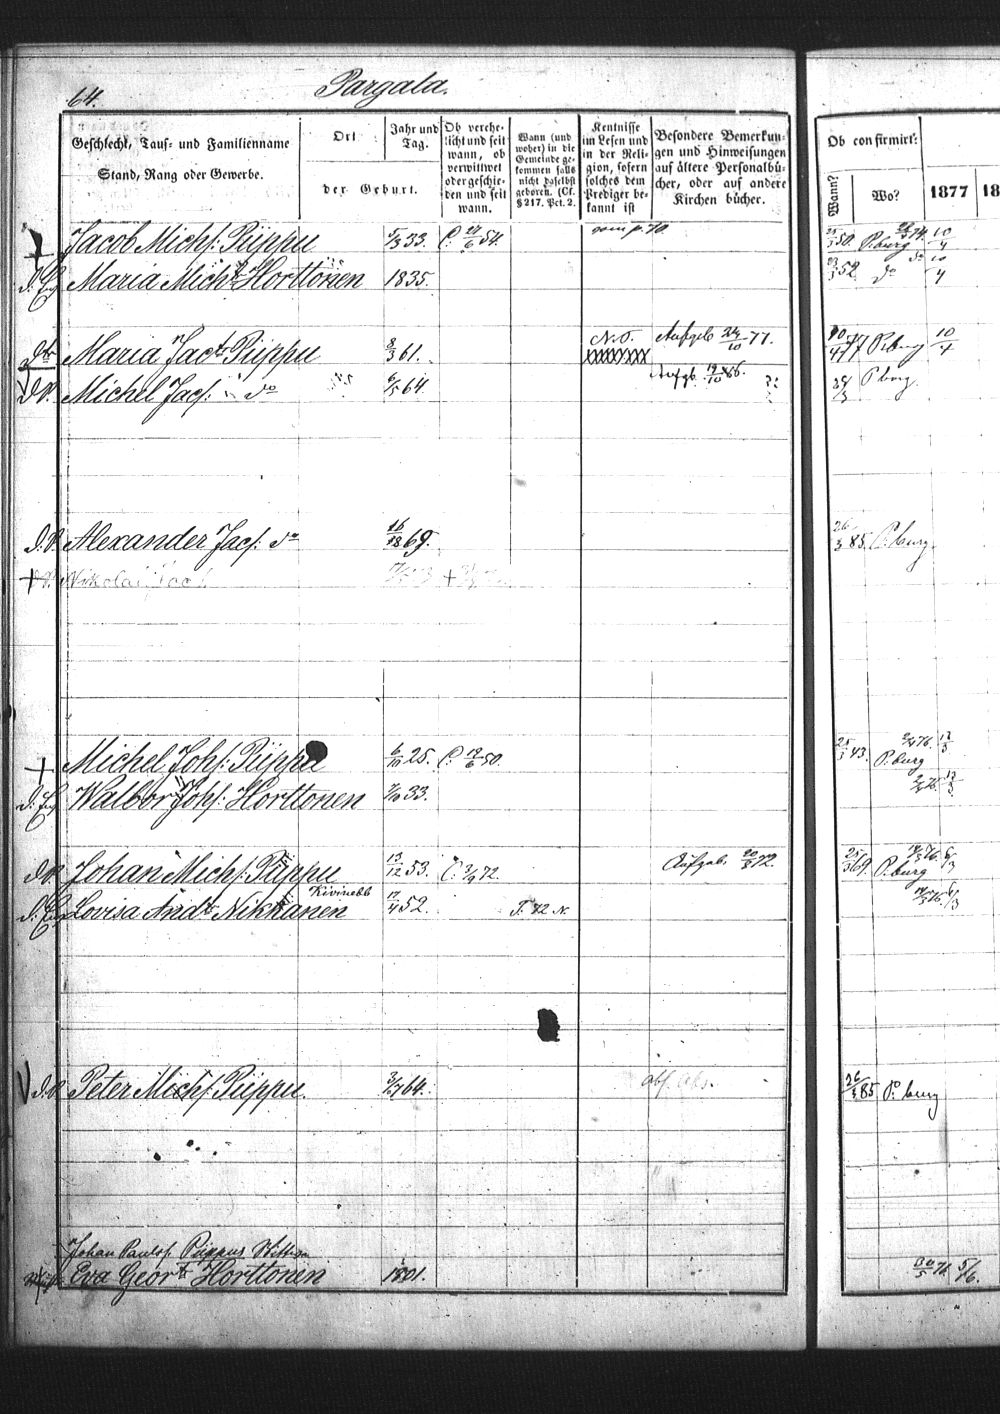 64.
Pargala.
Geschlecht, Tauf- und Familienname
Stand, Rang oder Gewerbe.
Ort
der Geburt.
Jahr und
Tag.
Ob verehe-
licht und seit
wann, ob
verwittwet
oder geschie-
den und seit
wann.
Wann (und
woher) in die
Gemeinde ge-
kommen falls
nicht daselbst
geboren. (Cf.
§ 217. Pct. 2.
Kentnisse
im Lesen und
in der Reli-
gion, sofern
solches dem
Prediger be-
kannt ist
Besondere Bemerkun-
gen und Hinweisungen
auf ältere Personalbü-
cher, oder auf andere
Kirchen bücher.
Ob confirmirt:
Wann?
Wo?
1877
18
Jacob Michs: Püppu 5/3 33. C. 27/6 54. vom p. 70. 50. P.burg 10/4
Maria Micht Horttonen 1835. 52. do 10/4
Maria Jact Püppu 8/3 61. N.T. Aufgeb 24/10 77. 10/4 77 P.burg 10/4
Michel Jacs: do 6/5 64. Aufgb. 19/10 86. P.burg.
Alexander Jacs: do 16/12 69. 26/3 85. P.burg.
Nikolai Jacs
Michel Johs: Püppu 6/10 25. C. 19/6 50. 25/3 43. P.burg 13/3
Walbor Johs: Horttonen 7/10 33. 13/3
Johan Michs: Püppu 13/12 53. C. 72. Aufgeb. 20/8 72. 25/3 69. P.burg 6/3
Kivinebb
Lovisa Andt Nikkanen 17/4 52. T. 72 N. 6/3
Peter Michs: Püppu. 3/7 64. 26/3 85 P.burg
Johan Pauls. Püppus Wittwe
Eva Geort Horttonen 1801. 5/6.